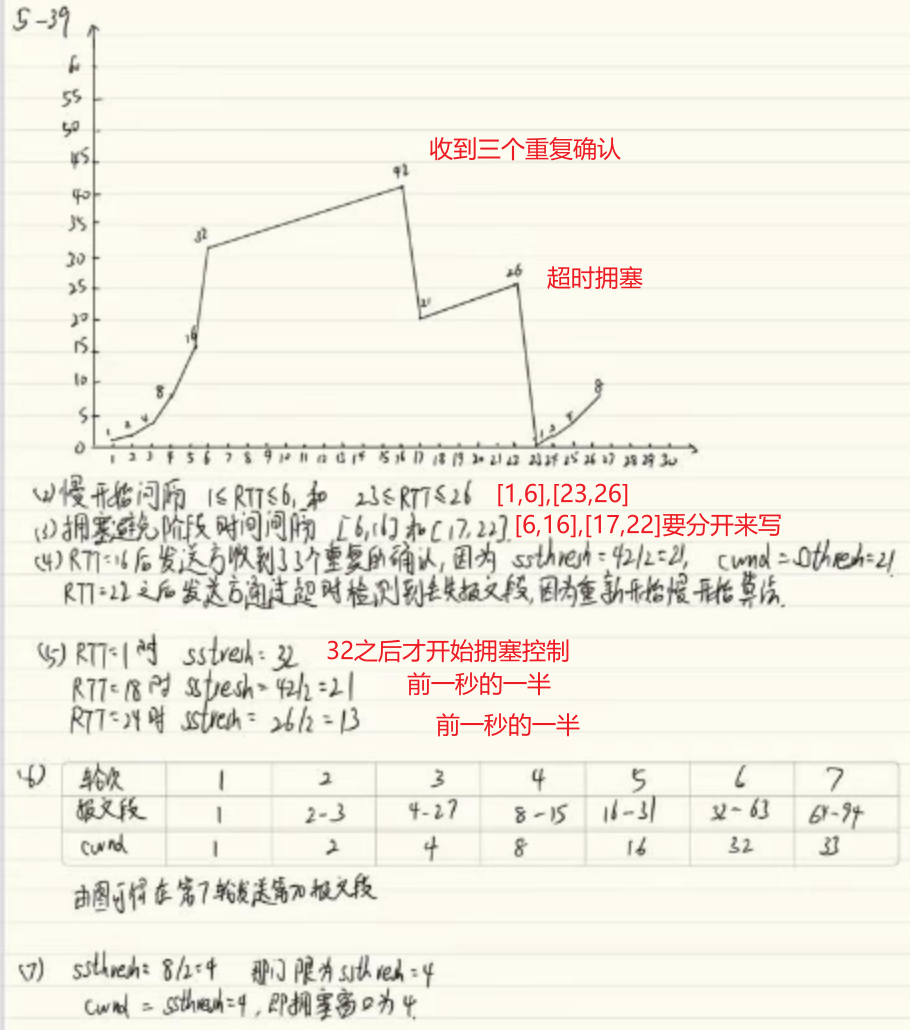 5-39
6
55
50
45
40
35
30
25
20
15
10
5
0
收到三个重复确认
42
32
超时拥塞
26
21
16
8
4
2
1
1
2
4
8
1 2 3 4 5 6 7 8 9 10 11 12 13 14 15 16 17 18 19 20 21 22 23 24 25 26 27 28 29 30
(2) 慢开始间隔 1≤RTT≤6, 和 23≤RTT≤26 [1,6],[23,26]
(3) 拥塞避免阶段时间间隔 [6,16]和[17,22]. [6,16],[17,22]要分开来写
(4) RTT=16后发送方收到了3个重复的确认,因为 ssthresh=42/2=21, cwnd=ssthresh=21
RTT=22之后发送方通过超时检测到丢失报文段,因为重新开始慢开始算法.
(5) RTT=1时 sstresh=32 32之后才开始拥塞控制
RTT=18时 sstresh=42/2=21 前一秒的一半
RTT=24时 sstresh=26/2=13 前一秒的一半
(6) 轮次 1 2 3 4 5 6 7
报文段 1 2-3 4-27 8-15 16-31 32-63 64-94
cwnd 1 2 4 8 16 32 33
由图可得在第7轮发送第70报文段
(7) ssthresh=8/2=4 那门限为ssthresh=4
cwnd=ssthresh=4,即拥塞窗口为4.